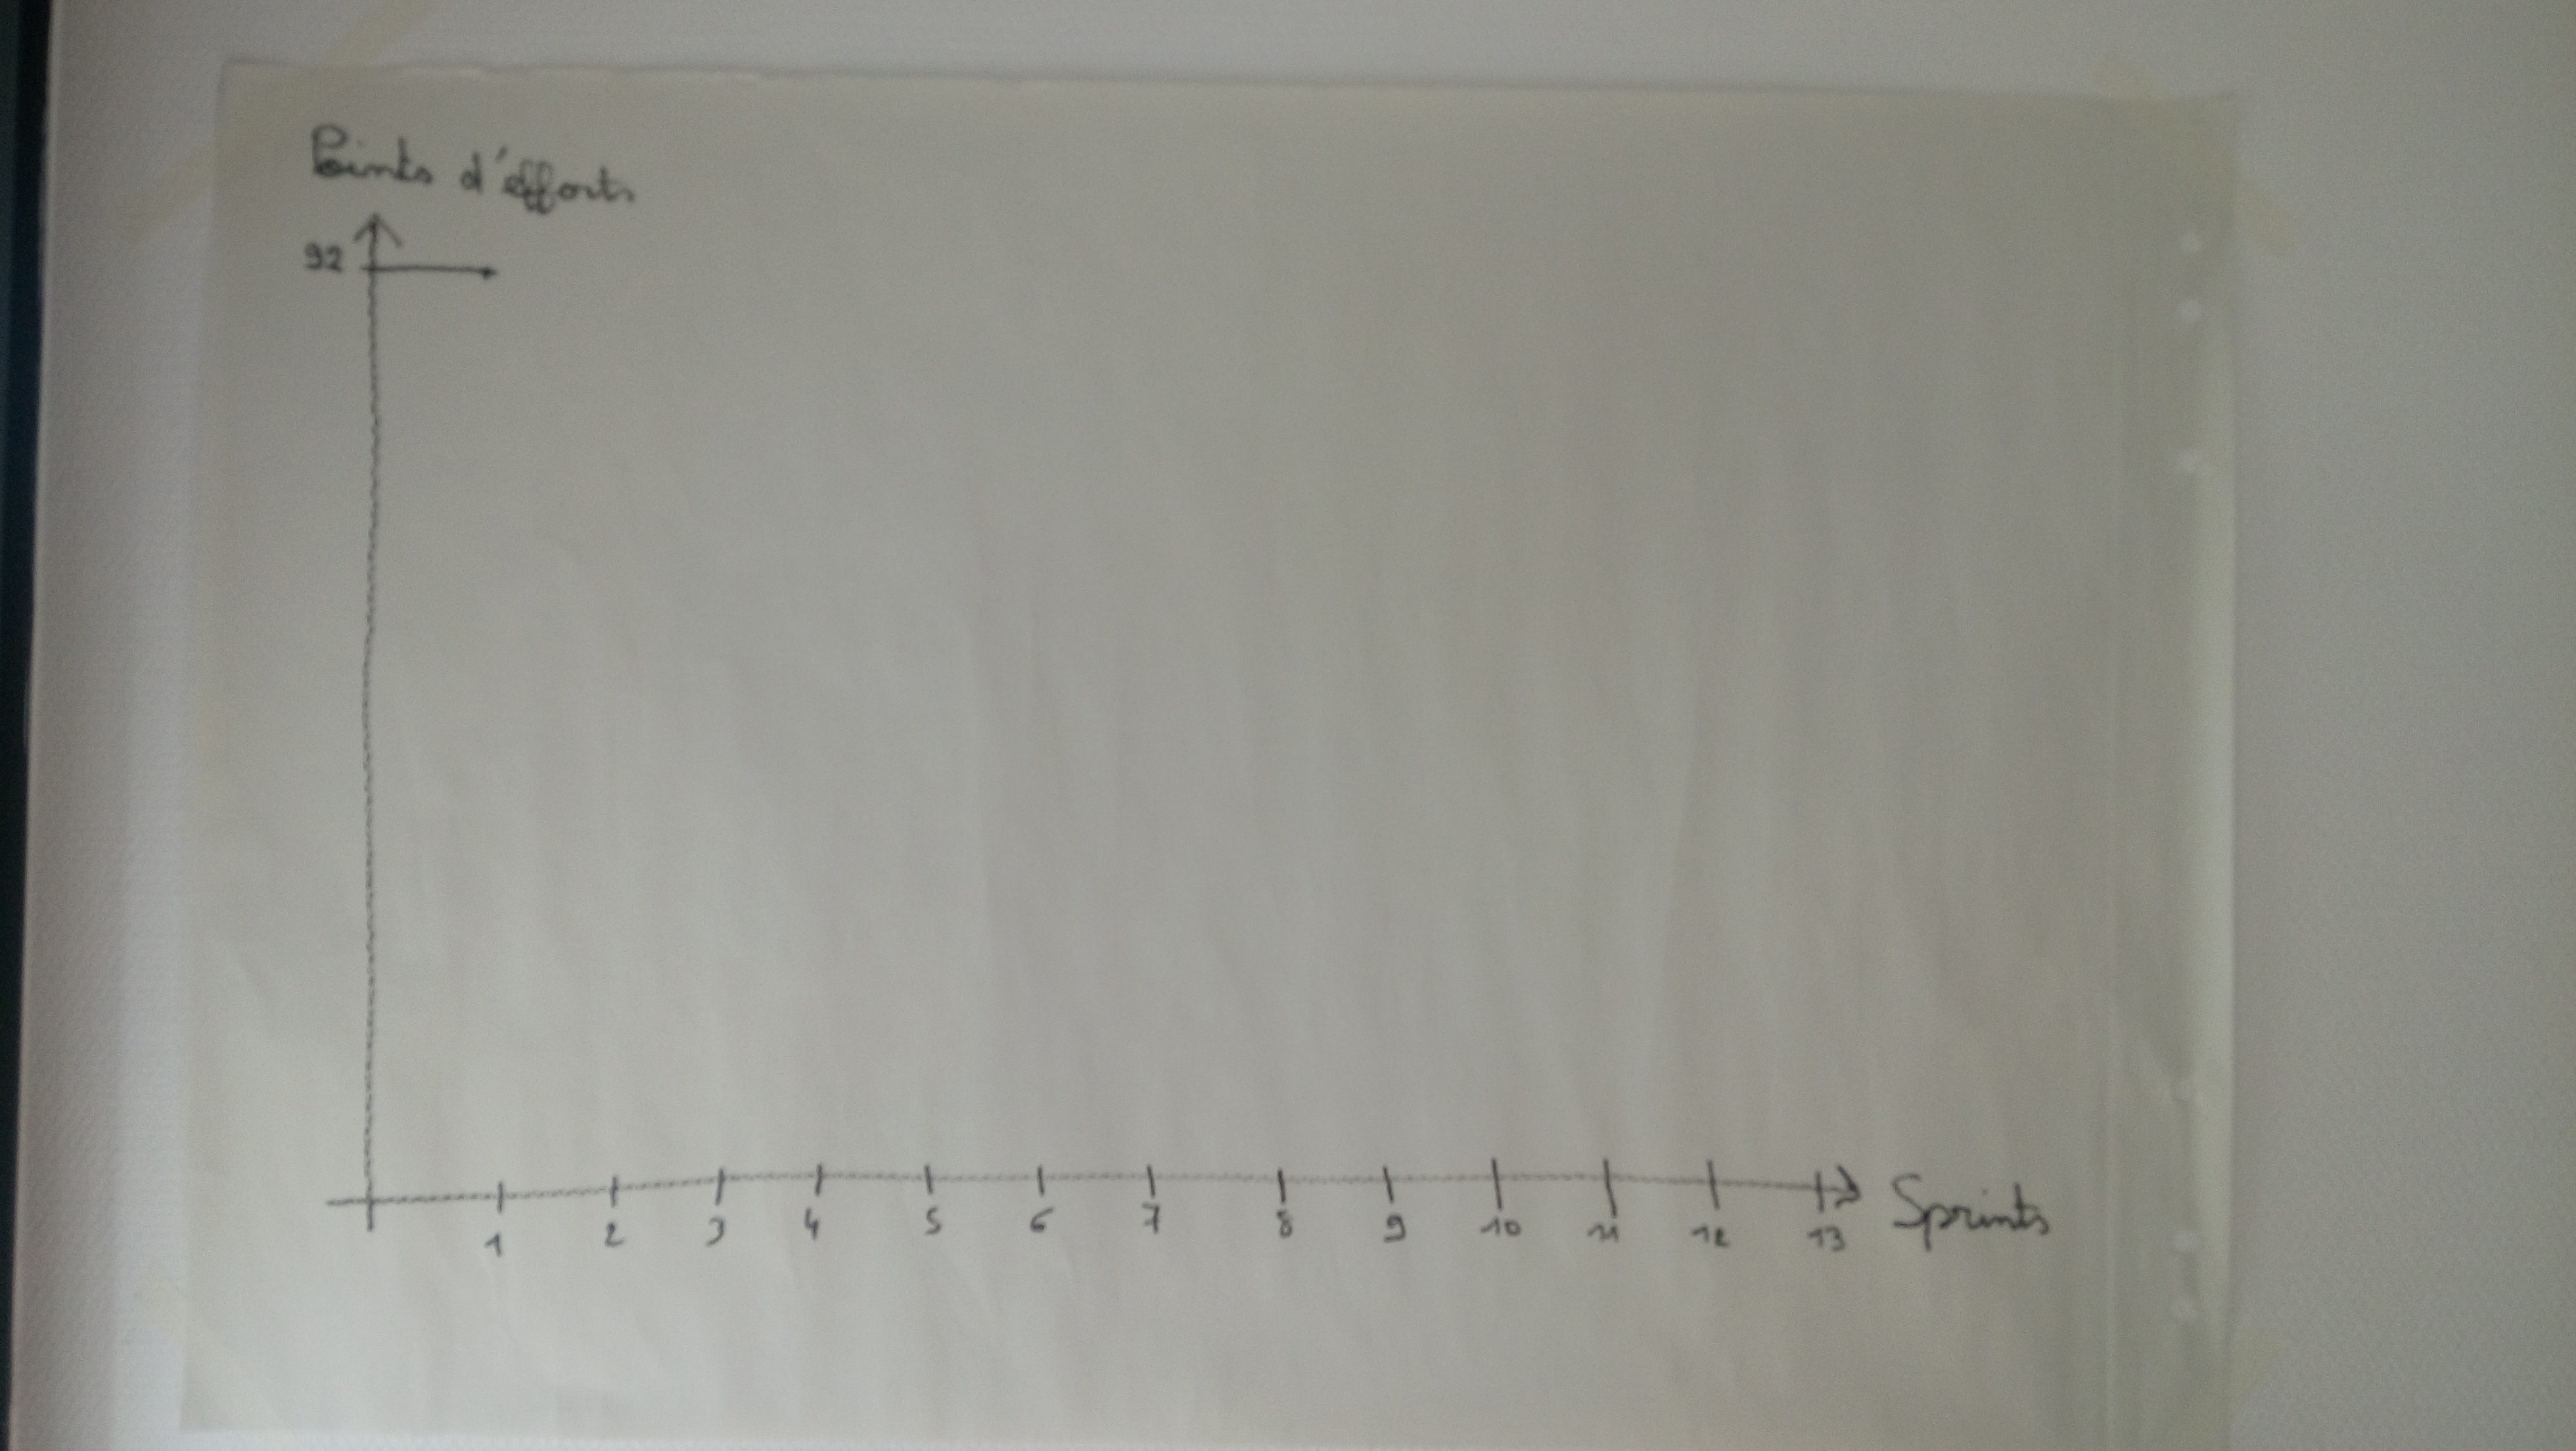 Points d'efforts
92
1 2 3 4 5 6 7 8 9 10 11 12 13 Sprints